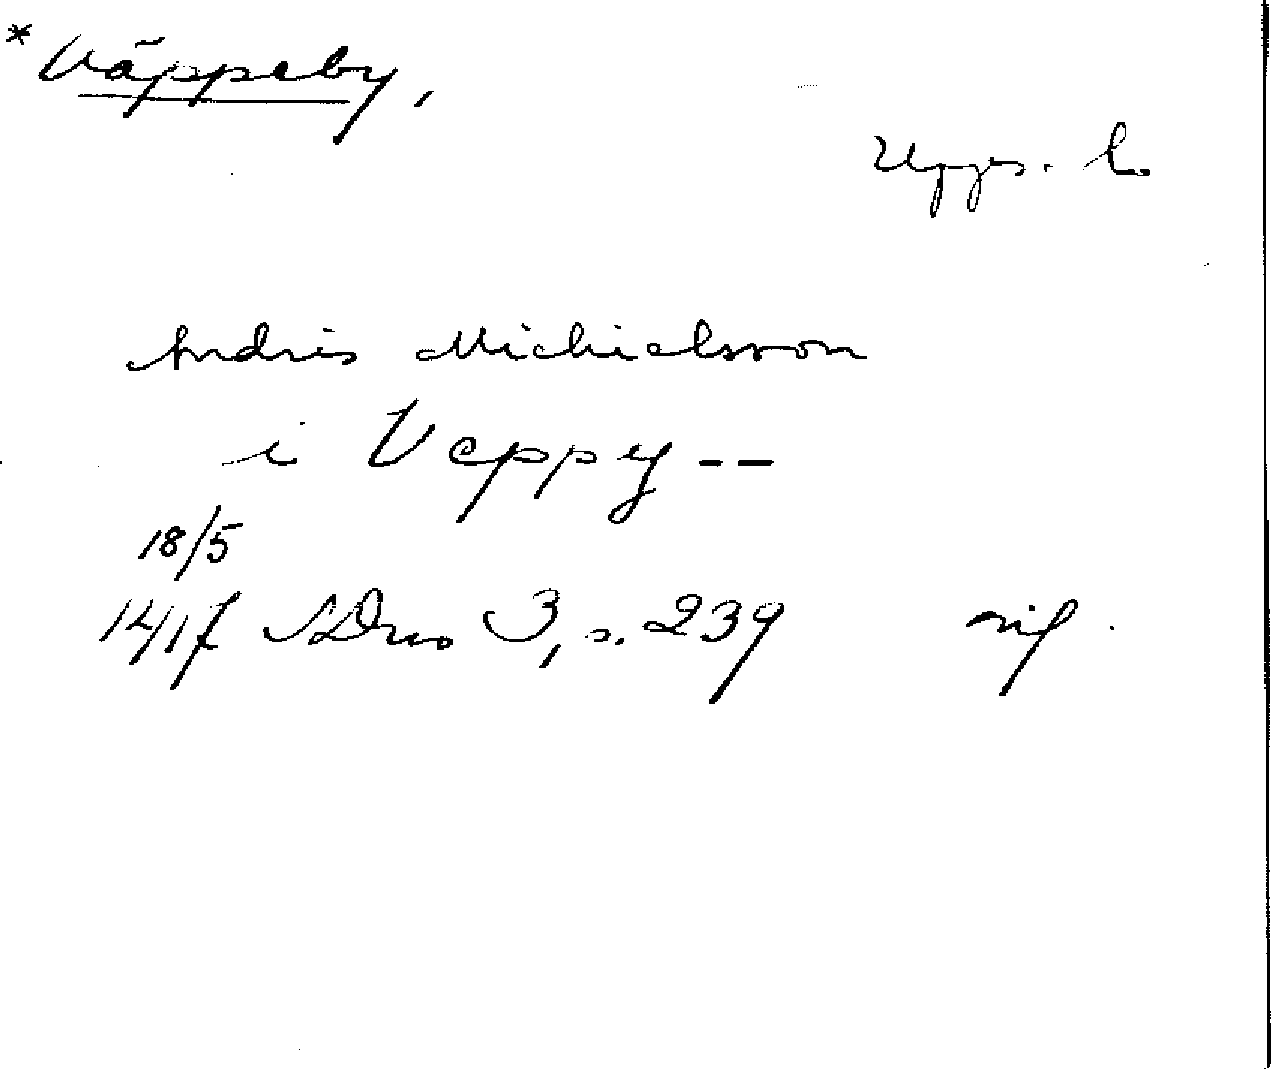 * Väppeby,
Upps. l.
Andris Michielsson
i Veppy --
18/5
1417 SDns 3, s. 239 rif.